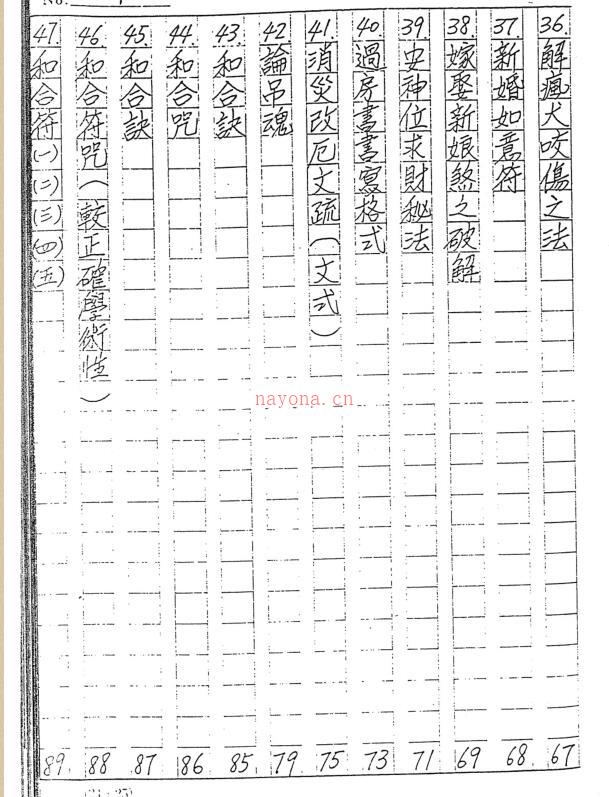 No.
36. 解瘋犬咬傷之法 67
37. 新婚如意符 68
38. 嫁娶新娘煞之破解 69
39. 安神位求財秘法 71
40. 過房書書寫格式 73
41. 消災改厄文疏(文式) 75
42. 論吊魂 79
43. 和合訣 85
44. 和合咒 86
45. 和合訣 87
46. 和合符咒(較正確學術性) 88
47. 和合符(一)(二)(三)(四)(五) 89
nayona.cn